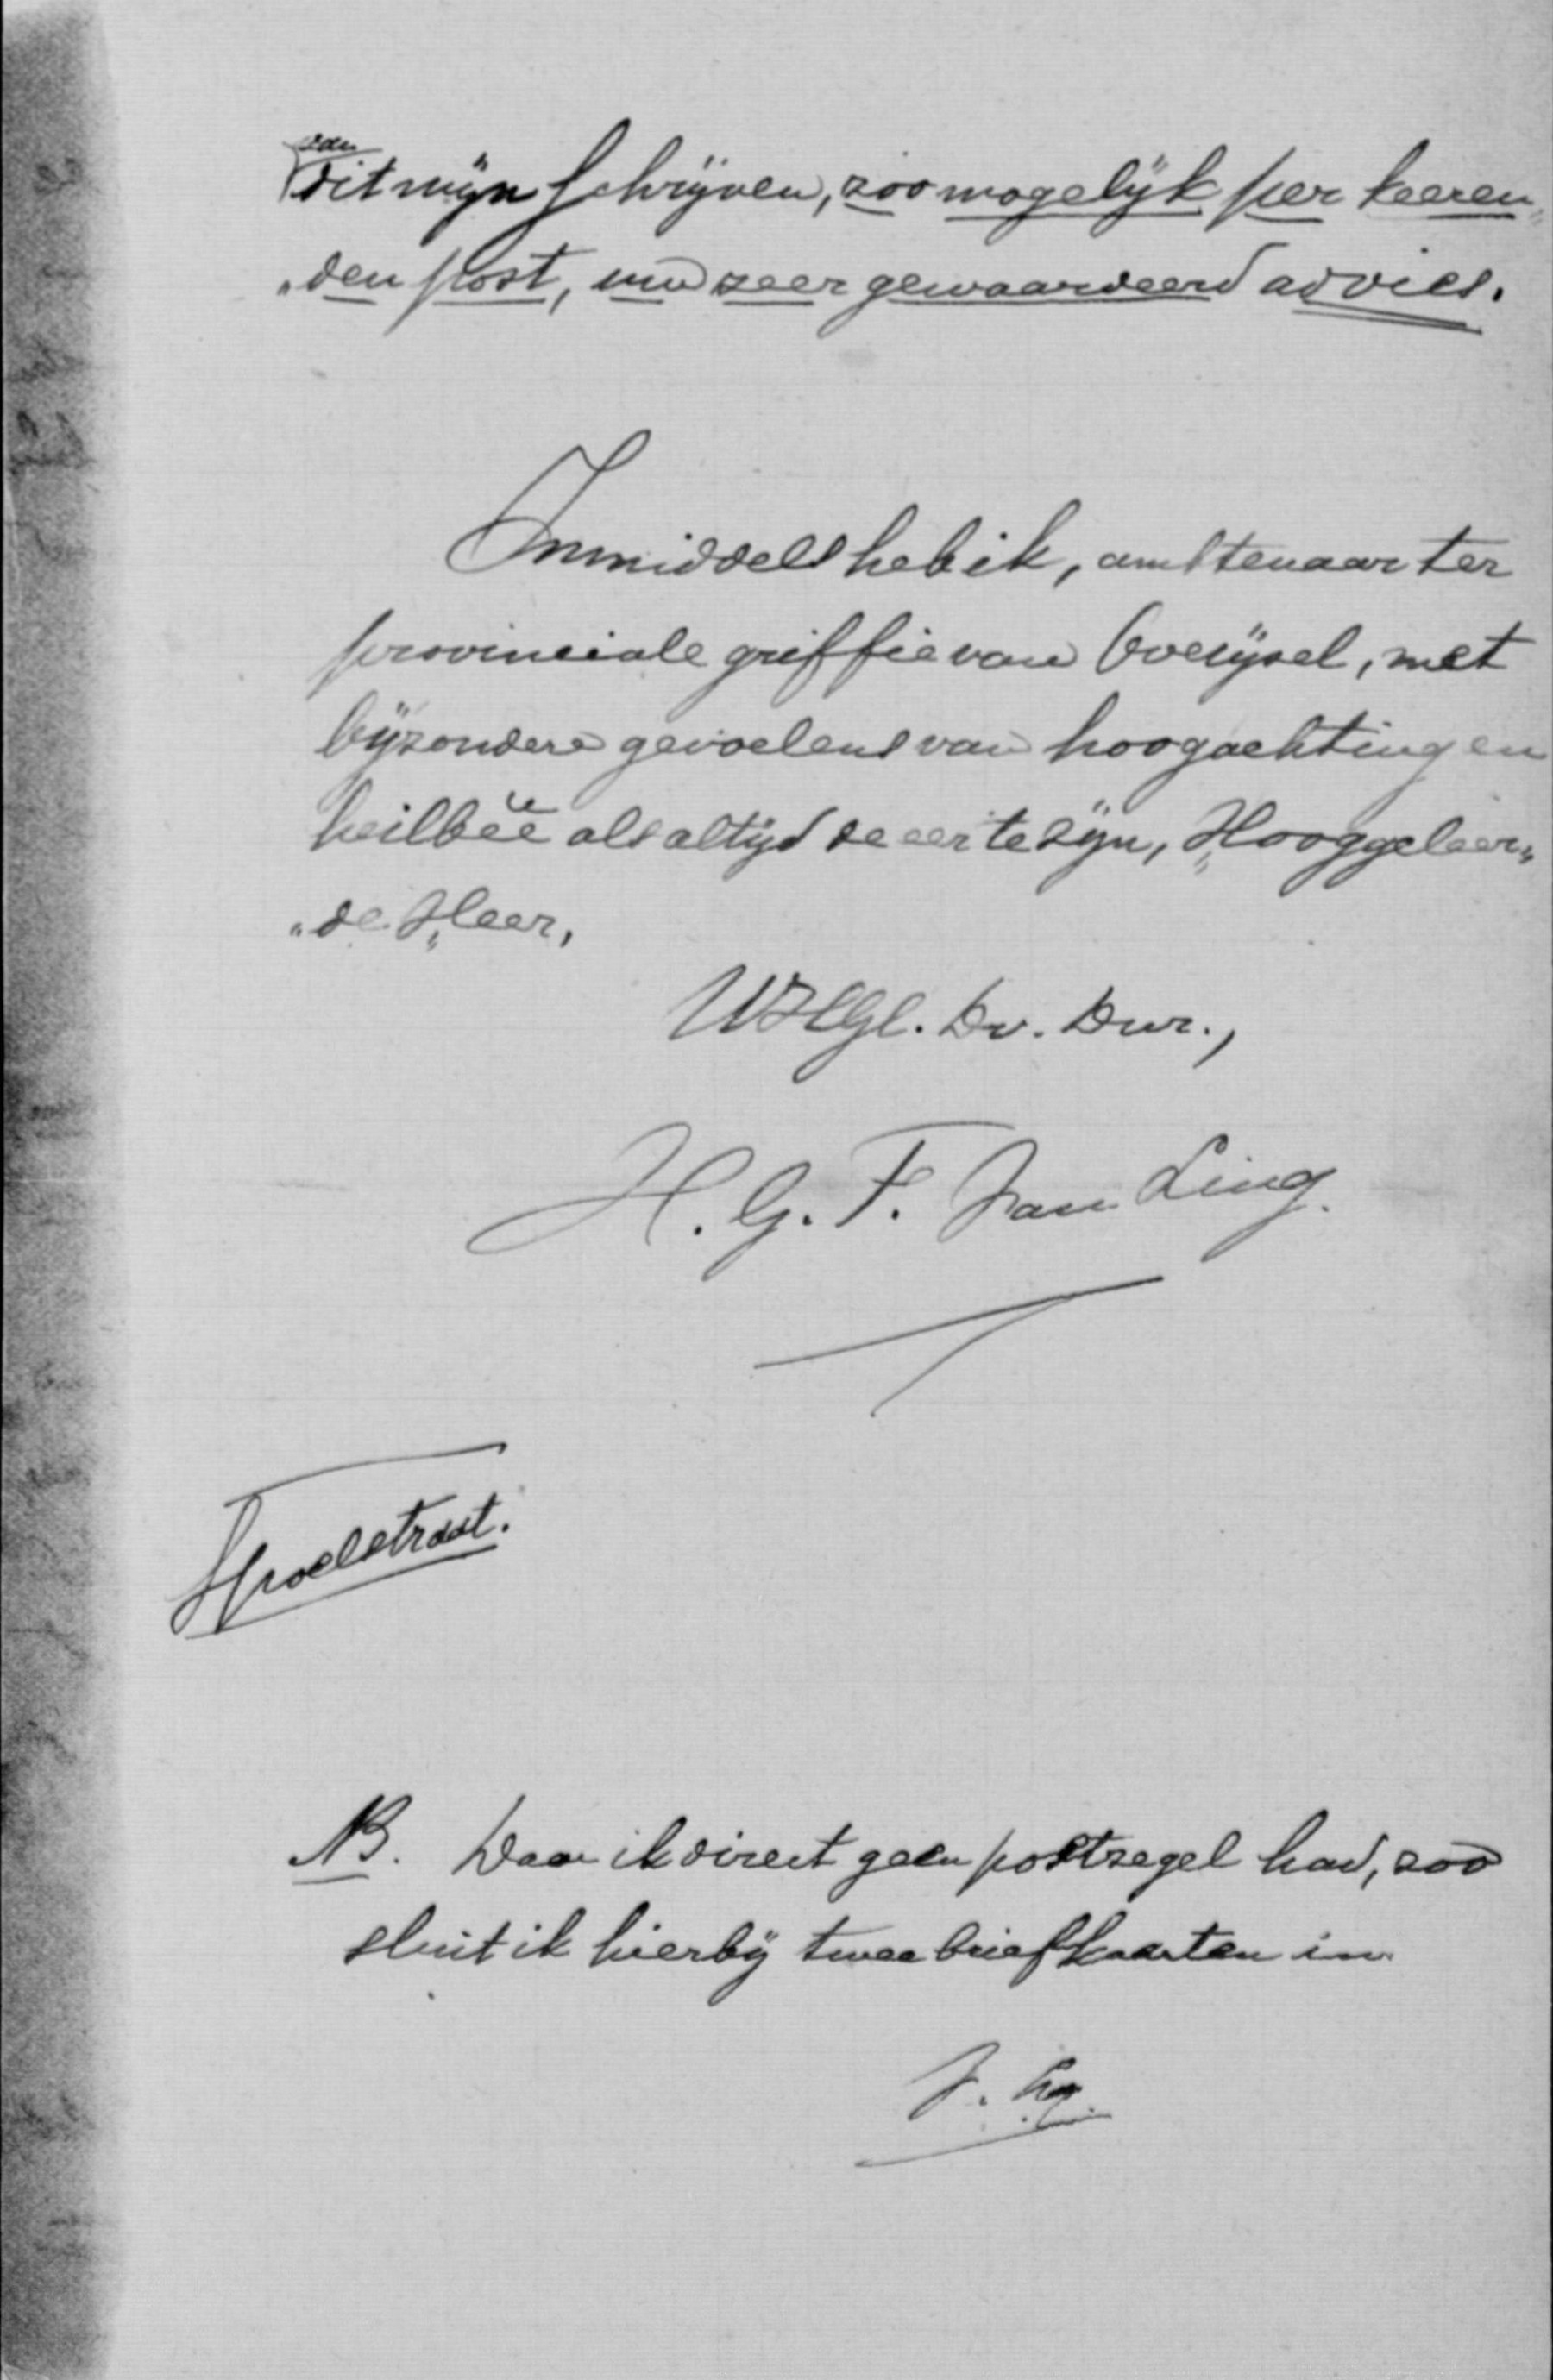 van
dit mijn schrijven, zoo mogelijk per keeren„
„den post, uw zeer gewaardeerd advies.
Inmiddels heb ik, ambtenaar ter
provinciale griffie van Overijsel, met
bijzondere gevoelens van hoogachting en
heilbeê als altijd de eer te zijn, Hooggeleer„
„de Heer,
UHGl. Dv. Dnr.,
H. G. F. Jan Ling.
Spoelstraat.
NB. Daar ik direct geen postzegel had, zoo
sluit ik hierbij twee briefkaarten in
J. Lg.